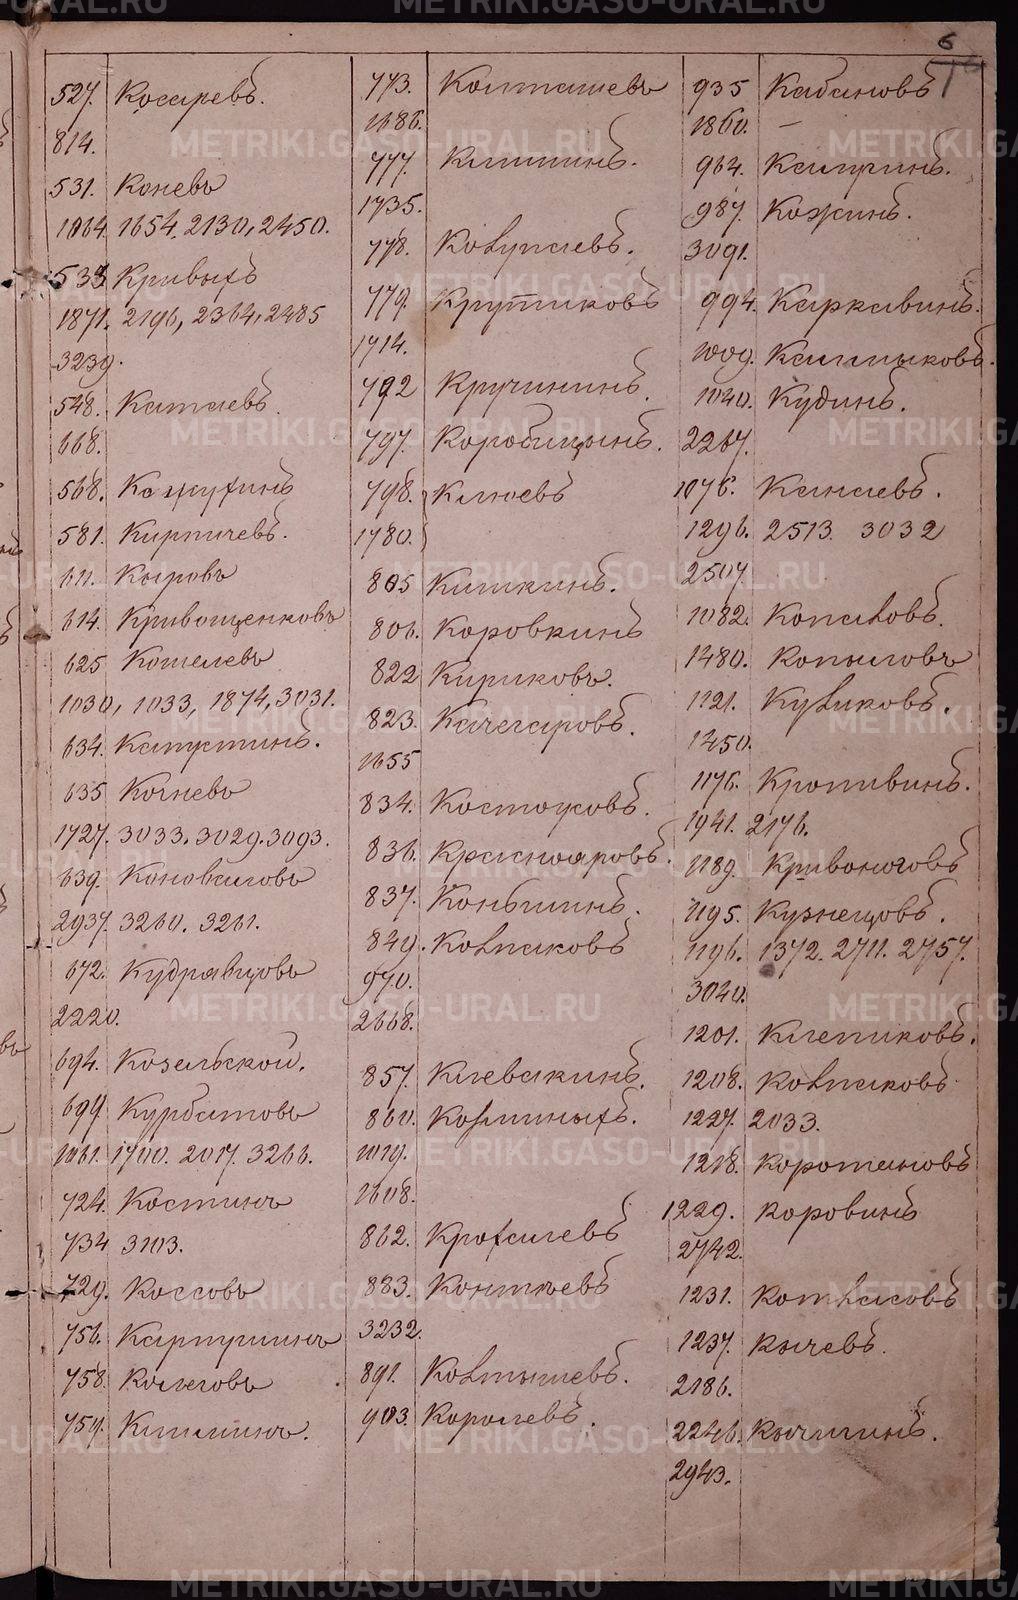 6
527. Косаревъ.
814.
531. Коневъ
1064. 1654. 2130, 2450.
533 Кривыхъ
1871. 2196, 2364, 2485
3239.
548. Катаевъ.
668.
568.
581. Кирпичевъ.
611. Кыровъ
614. Кривощенковъ
625 Кошелевъ
1030, 1033, 1874, 3031.
634. Капустинъ.
635 Кочневъ
1727. 3033. 3029. 3093.
639. Коноваловъ
2937. 3260. 3261.
672. Кудрявцовъ
2220.
694. Козельской.
699 Курбатовъ
1061. 1700. 2017. 3266.
724. Костинъ
734 3103.
729. Коссовъ
756. Карпушинъ
758. Колеговъ
759. Климинъ.
773. Колташевъ
1686.
777. Клишинъ.
1735.
778. Колупаевъ.
779. Крутиковъ
1714.
792 Кручининъ.
797. Коробицынъ.
798. Клюевъ
1780.
805 Кишкинъ.
806. Коровкинъ
822 Кириковъ.
823. Качегаровъ.
1655
834. Костоусовъ.
836. Красноаровъ.
837. Коньшинъ.
849. Колпаковъ
970.
2668.
857. Клевакинъ.
860. Колминыхъ.
1019.
1608.
862. Крохалевъ
883. Контѣевъ
3232.
891. Колтышевъ.
903. Королевъ.
935 Кабановъ
1860. —
964. Капринъ.
987. Кожинъ.
3091.
994. Каркавинъ.
1009. Калмыковъ.
1040. Кудинъ.
2267.
1076. Канаевъ.
1296. 2513. 3032
2507.
1082. Копаловъ.
1480. Копыловъ
1121. Куликовъ.
1450.
1176. Кропивинъ.
1941. 2176.
1189. Кривоноговъ
1195. Кузнецовъ.
1196. 1372. 2711. 2757.
3040.
1201. Клепиковъ.
1208. Колпаковъ
1227. 2033.
1218. Коротановъ
1229. Коровинъ
2742.
1231. Котласовъ
1237. Кычевъ.
2186.
2246. Кычминъ.
2943.
METRIKI.GASO-URAL.RU